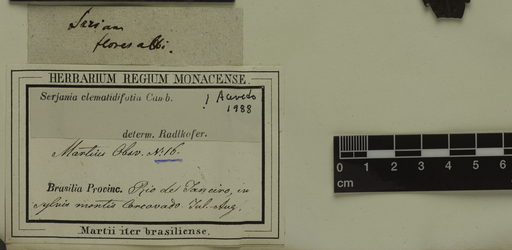 flores albi.
HERBARIUM REGIUM MONACENSE.
Serjania clematidifolia Camb.
! Acevedo
1988
determ. Radlkofer.
Martius Obsv. No 16.
Brasilia Provinc. Rio de Janeiro, in
sylvis montis Corcovado Jul.-Aug.
Martii iter brasiliense.
0 1 2 3 4 5 6
cm